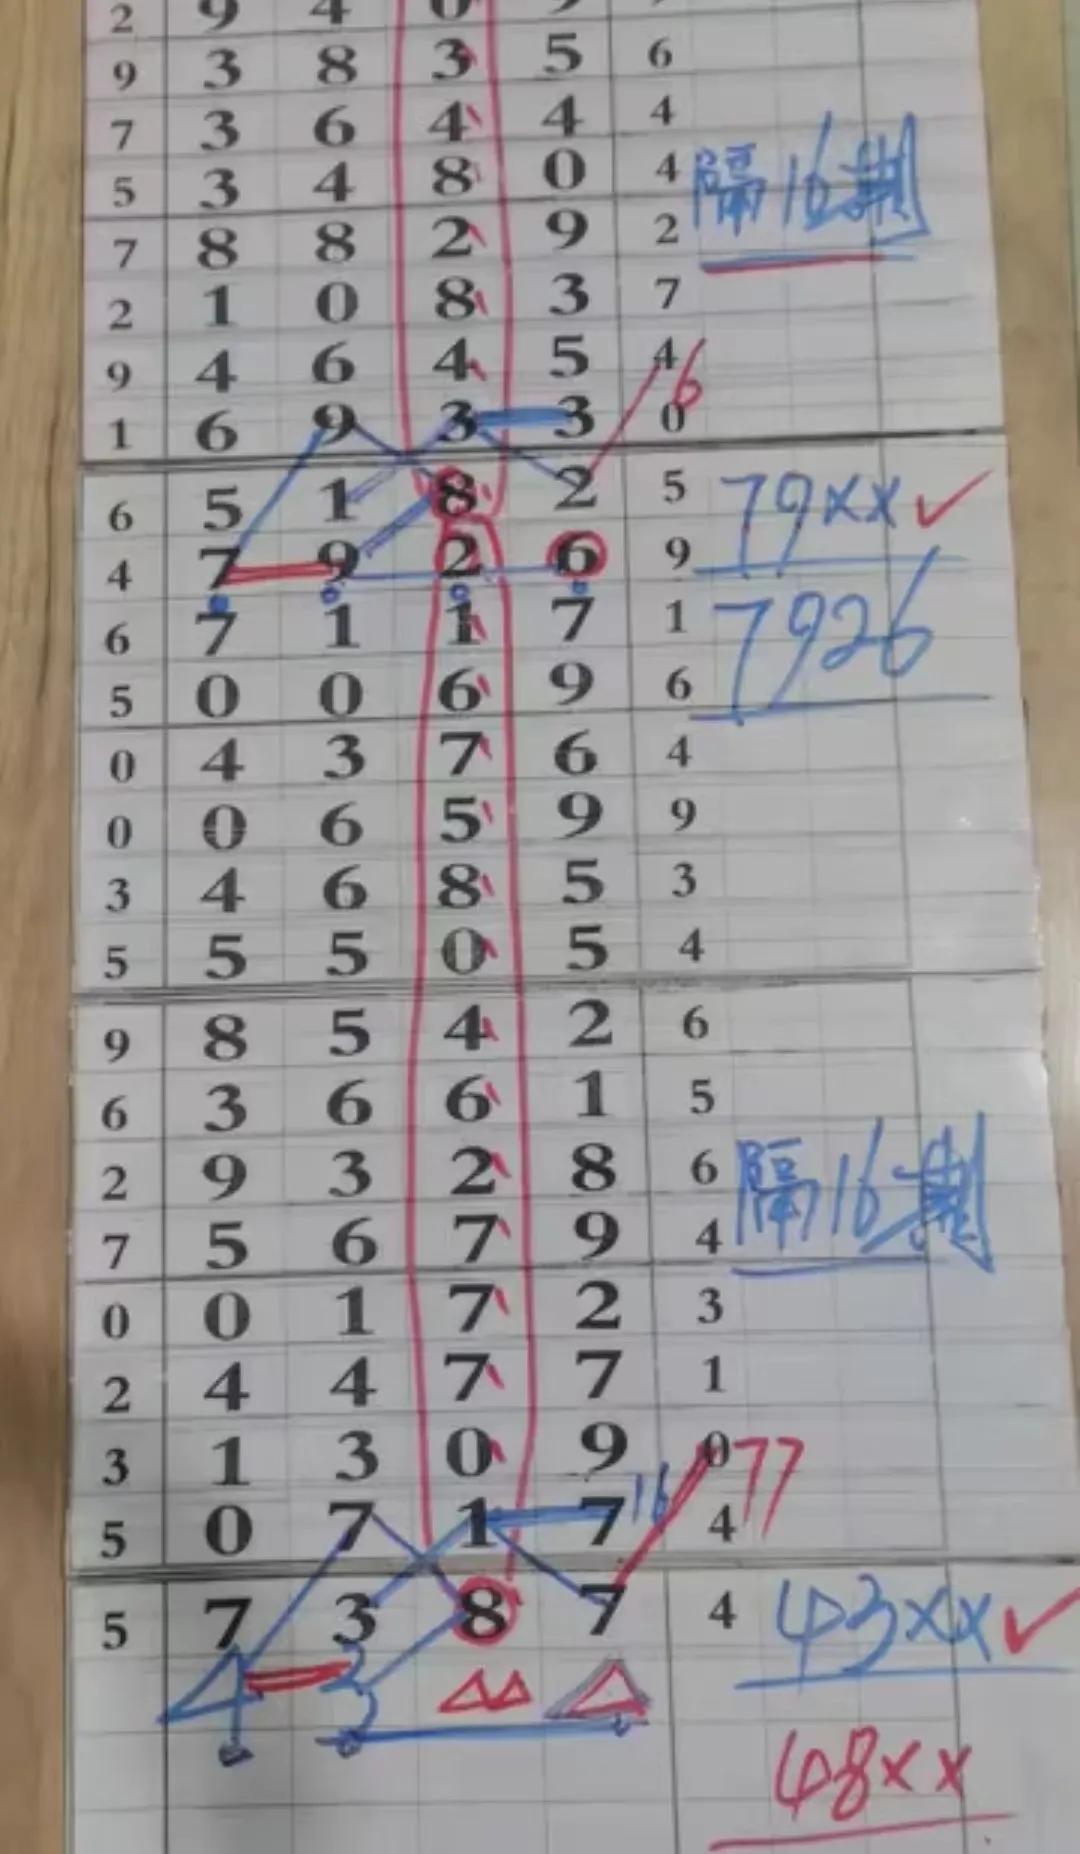 2 9 4 0 9
9 3 8 3 5 6
7 3 6 4 4 4
5 3 4 8 0 4 隔16期
7 8 8 2 9 2
2 1 0 8 3 7
9 4 6 4 5 4 6
1 6 9 3 3 0
6 5 1 8 2 5 79xx✓
4 7 9 2 6 9
6 7 1 1 7 1 7926
5 0 0 6 9 6
0 4 3 7 6 4
0 0 6 5 9 9
3 4 6 8 5 3
5 5 5 0 5 4
9 8 5 4 2 6
6 3 6 6 1 5
2 9 3 2 8 6 隔16期
7 5 6 7 9 4
0 0 1 7 2 3
2 4 4 7 7 1
3 1 3 0 9 0 77
5 0 7 1 7 16 4
5 7 3 8 7 4 43xx✓
4 3
48xx